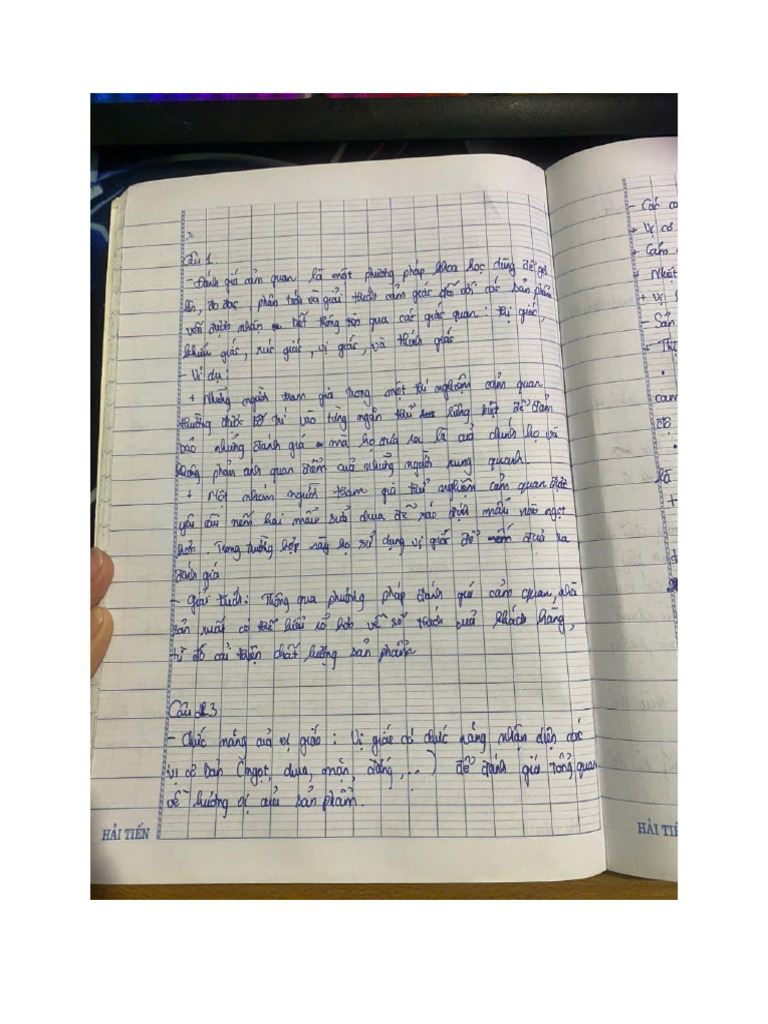 Câu 1.
- Đánh giá cảm quan là một phương pháp khoa học dùng để gợi
lên, đo đạc, phân tích và giải thích cảm giác đối với các sản phẩm
vốn được nhận biết thông qua các giác quan: thị giác,
khứu giác, xúc giác, vị giác, và thính giác
- Ví dụ:
+ Những người tham gia trong một thí nghiệm cảm quan
thường được bố trí vào từng ngăn thử riêng biệt để đảm
bảo những đánh giá mà họ đưa ra là của chính họ và
không phản ánh quan điểm của những người xung quanh.
+ Một nhóm người tham gia thử nghiệm cảm quan được
yêu cầu nếm hai mẫu sữa chua để xác định mẫu nào ngọt
hơn. Trong trường hợp này họ sử dụng vị giác để đưa ra
đánh giá
- Giải thích: Thông qua phương pháp đánh giá cảm quan, nhà
sản xuất có thể hiểu rõ hơn về sở thích của khách hàng,
từ đó cải thiện chất lượng sản phẩm
Câu 3
- Chức năng của vị giác: Vị giác có chức năng nhận diện các
vị cơ bản (ngọt, chua, mặn, đắng,...) để đánh giá tổng quan
về hương vị của sản phẩm.
HẢI TIẾN
- Các
+ Vị cơ
+ Cảm
+ Nhiệt
+ Vị
- Sản
độ
là
+
HẢI TI